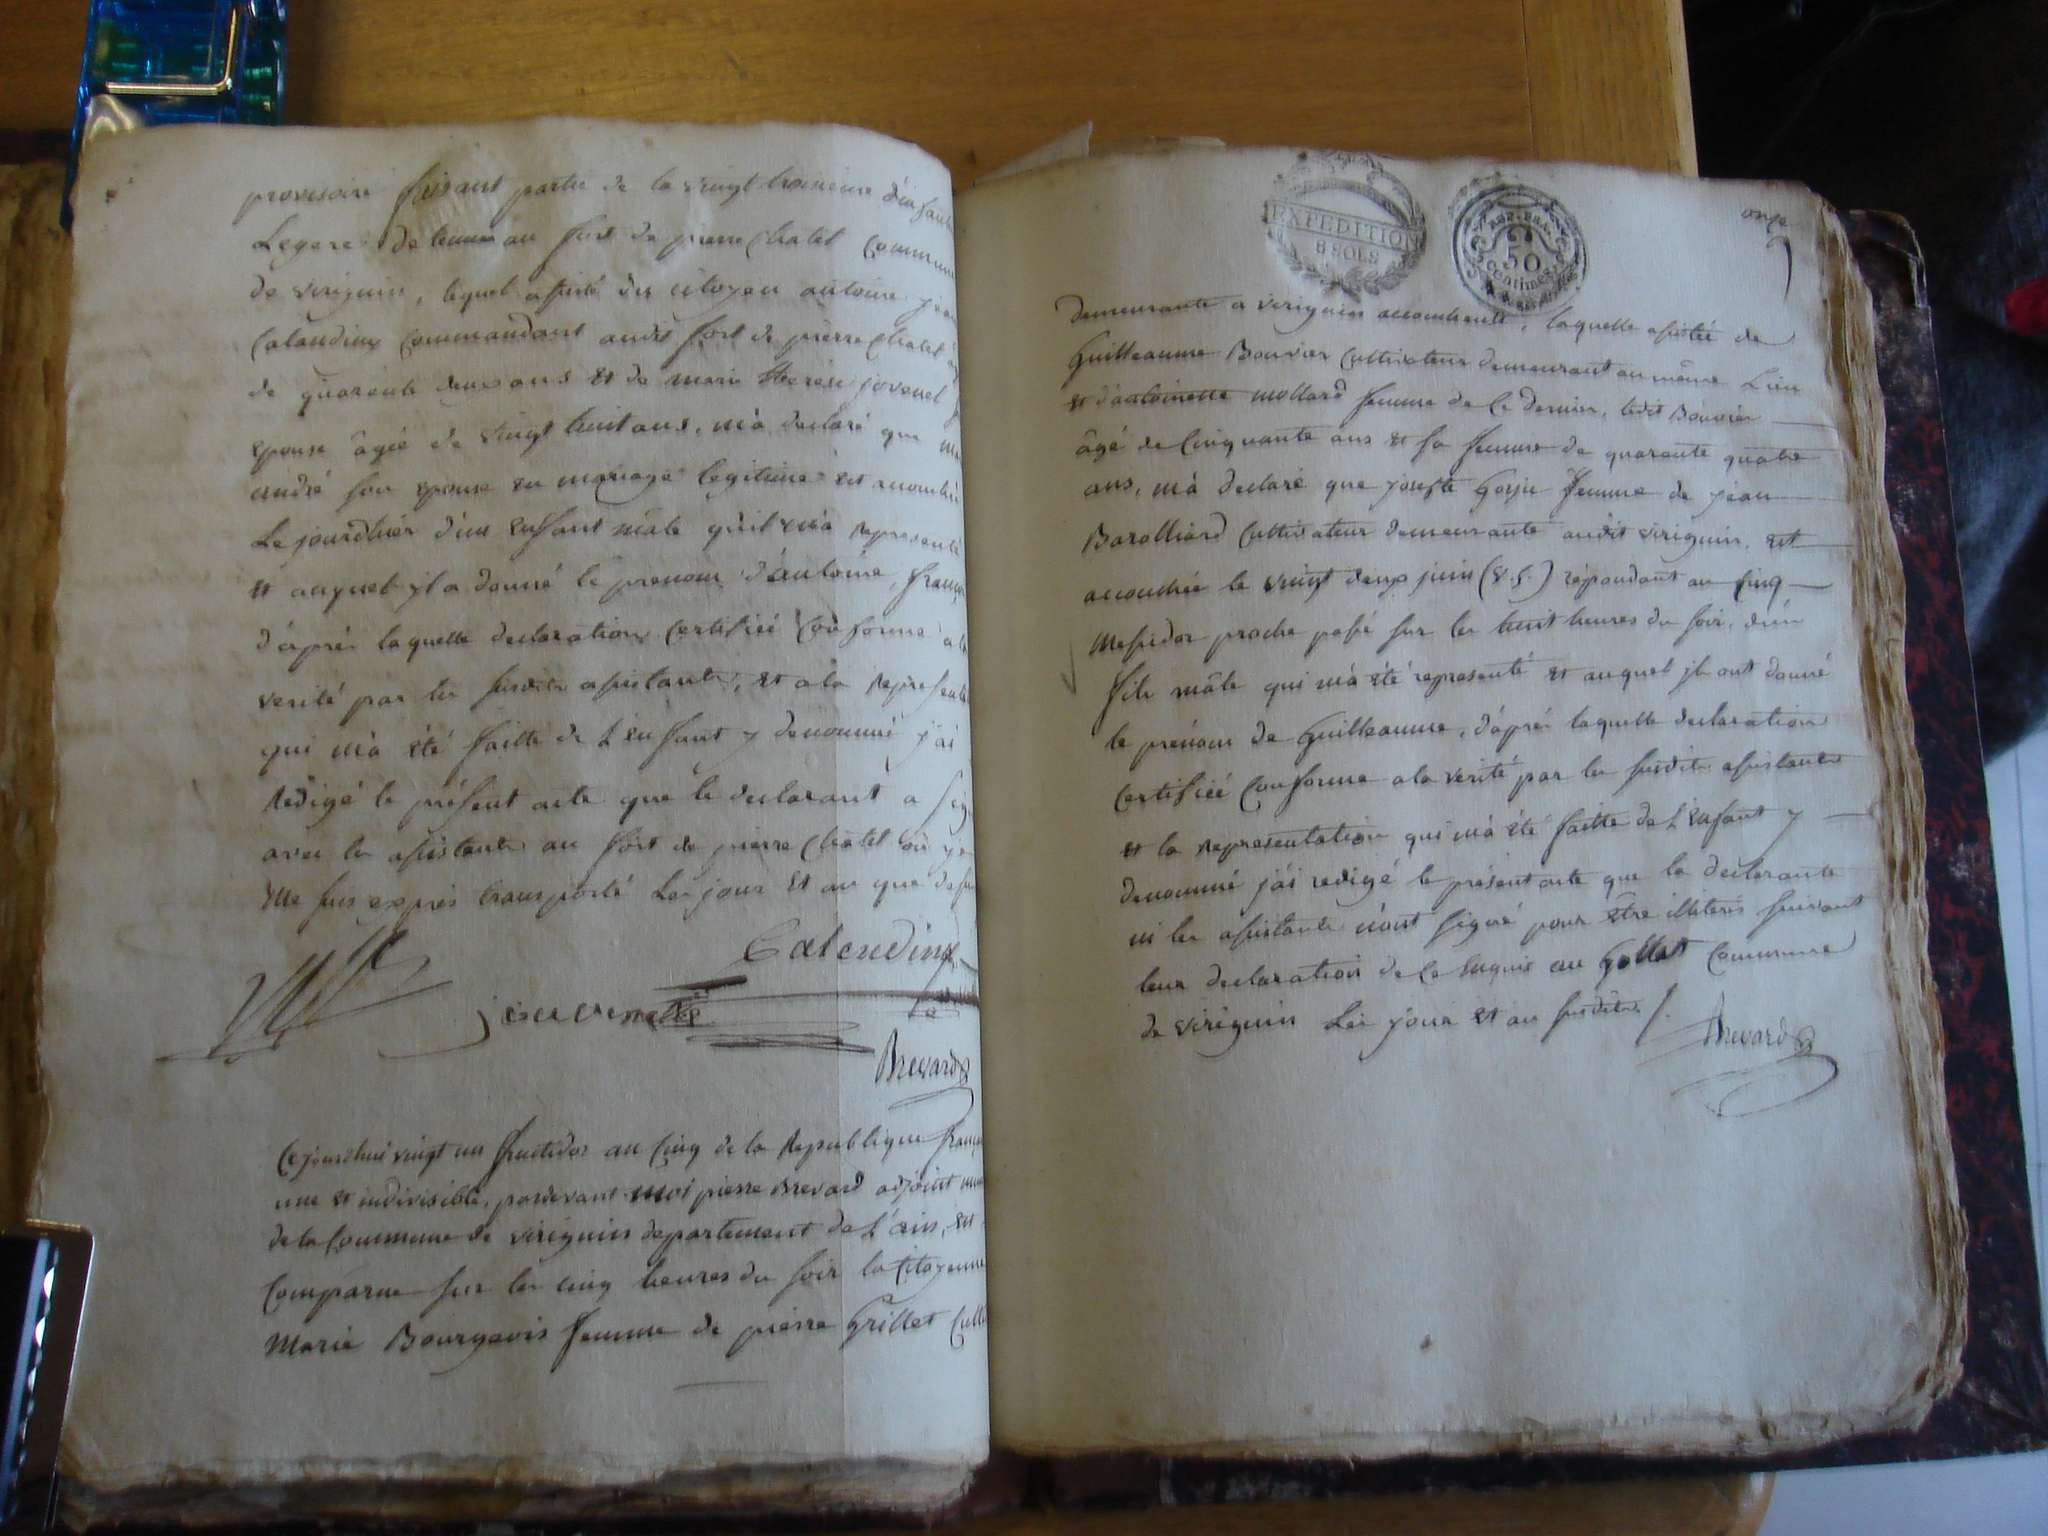 provisoire faisant partie de la vingt troisieme d'infant
Legere de tenue au fort de pierre Chatel Commune
de virignin, lequel assisté du citoyen antoine
Calaudiny Commandant audit fort de pierre Chatel
de quarente deux ans et de marie therese jovenel
epouse âgée de vingt huit ans, m'a declaré que
andré son epouse en mariage legitime est accouchée
Le jourdhier d'un enfant mâle qu'il m'a representé
et auquel il a donné le prenom d'antoine, franç
d'aprés laquelle declaration certifiée conforme a la
verité par les susdits assistants, et a la representa
qui m'a été faitte de l'enfant y denommé j'ai
Redigé le présent acte que le declarant a sig
avec les assistants au fort de pierre Chatel où je
Me suis exprés transporté Les jour et an que dessus
Calendiny
jeuvenelle
Brevard
Cejourdhui vingt un fructidor an Cinq de la Republique franç
une et indivisible, pardevant moi pierre Brevard adjoint mun
de la Commune de virignin departement de L'ain, est
Comparue sur les cinq heures du soir la Citoyenne
Marie Bourgeois femme de pierre Grillet Culti
EXPEDITION
8 SOLS
50
Centimes
onze
demeurante a virignin accoucheuse, laquelle assistée de
Guilleaume Bouvier Cultivateur demeurant au même Lieu
et d'antoinette mollard femme de ce dernier, ledit Bouvier
âgé de Cinquante ans et sa femme de quarente quatre
ans, m'à declaré que femme de jean
Barolliard Cultivateur demeurante audit virignin, est
accouchée le vingt deux juin (v.s.) répondant au Cinq
Messidor proche passé sur les huit heures du soir, d'un
fils mâle qui m'à été representé et auquel ils ont donné
le prénom de Guilleaume, d'après laquelle declaration
certifiée Conforme a la verité par les susdits assistants
et la representation qui m'à été faitte de l'enfant y
denommé j'ai redigé le présent acte que la declarante
ni les assistants n'ont signé pour être illiterés suivant
leur declaration de ce enquis au Gollet Commune
de virignin Les jour et an susdits /.
Brevard